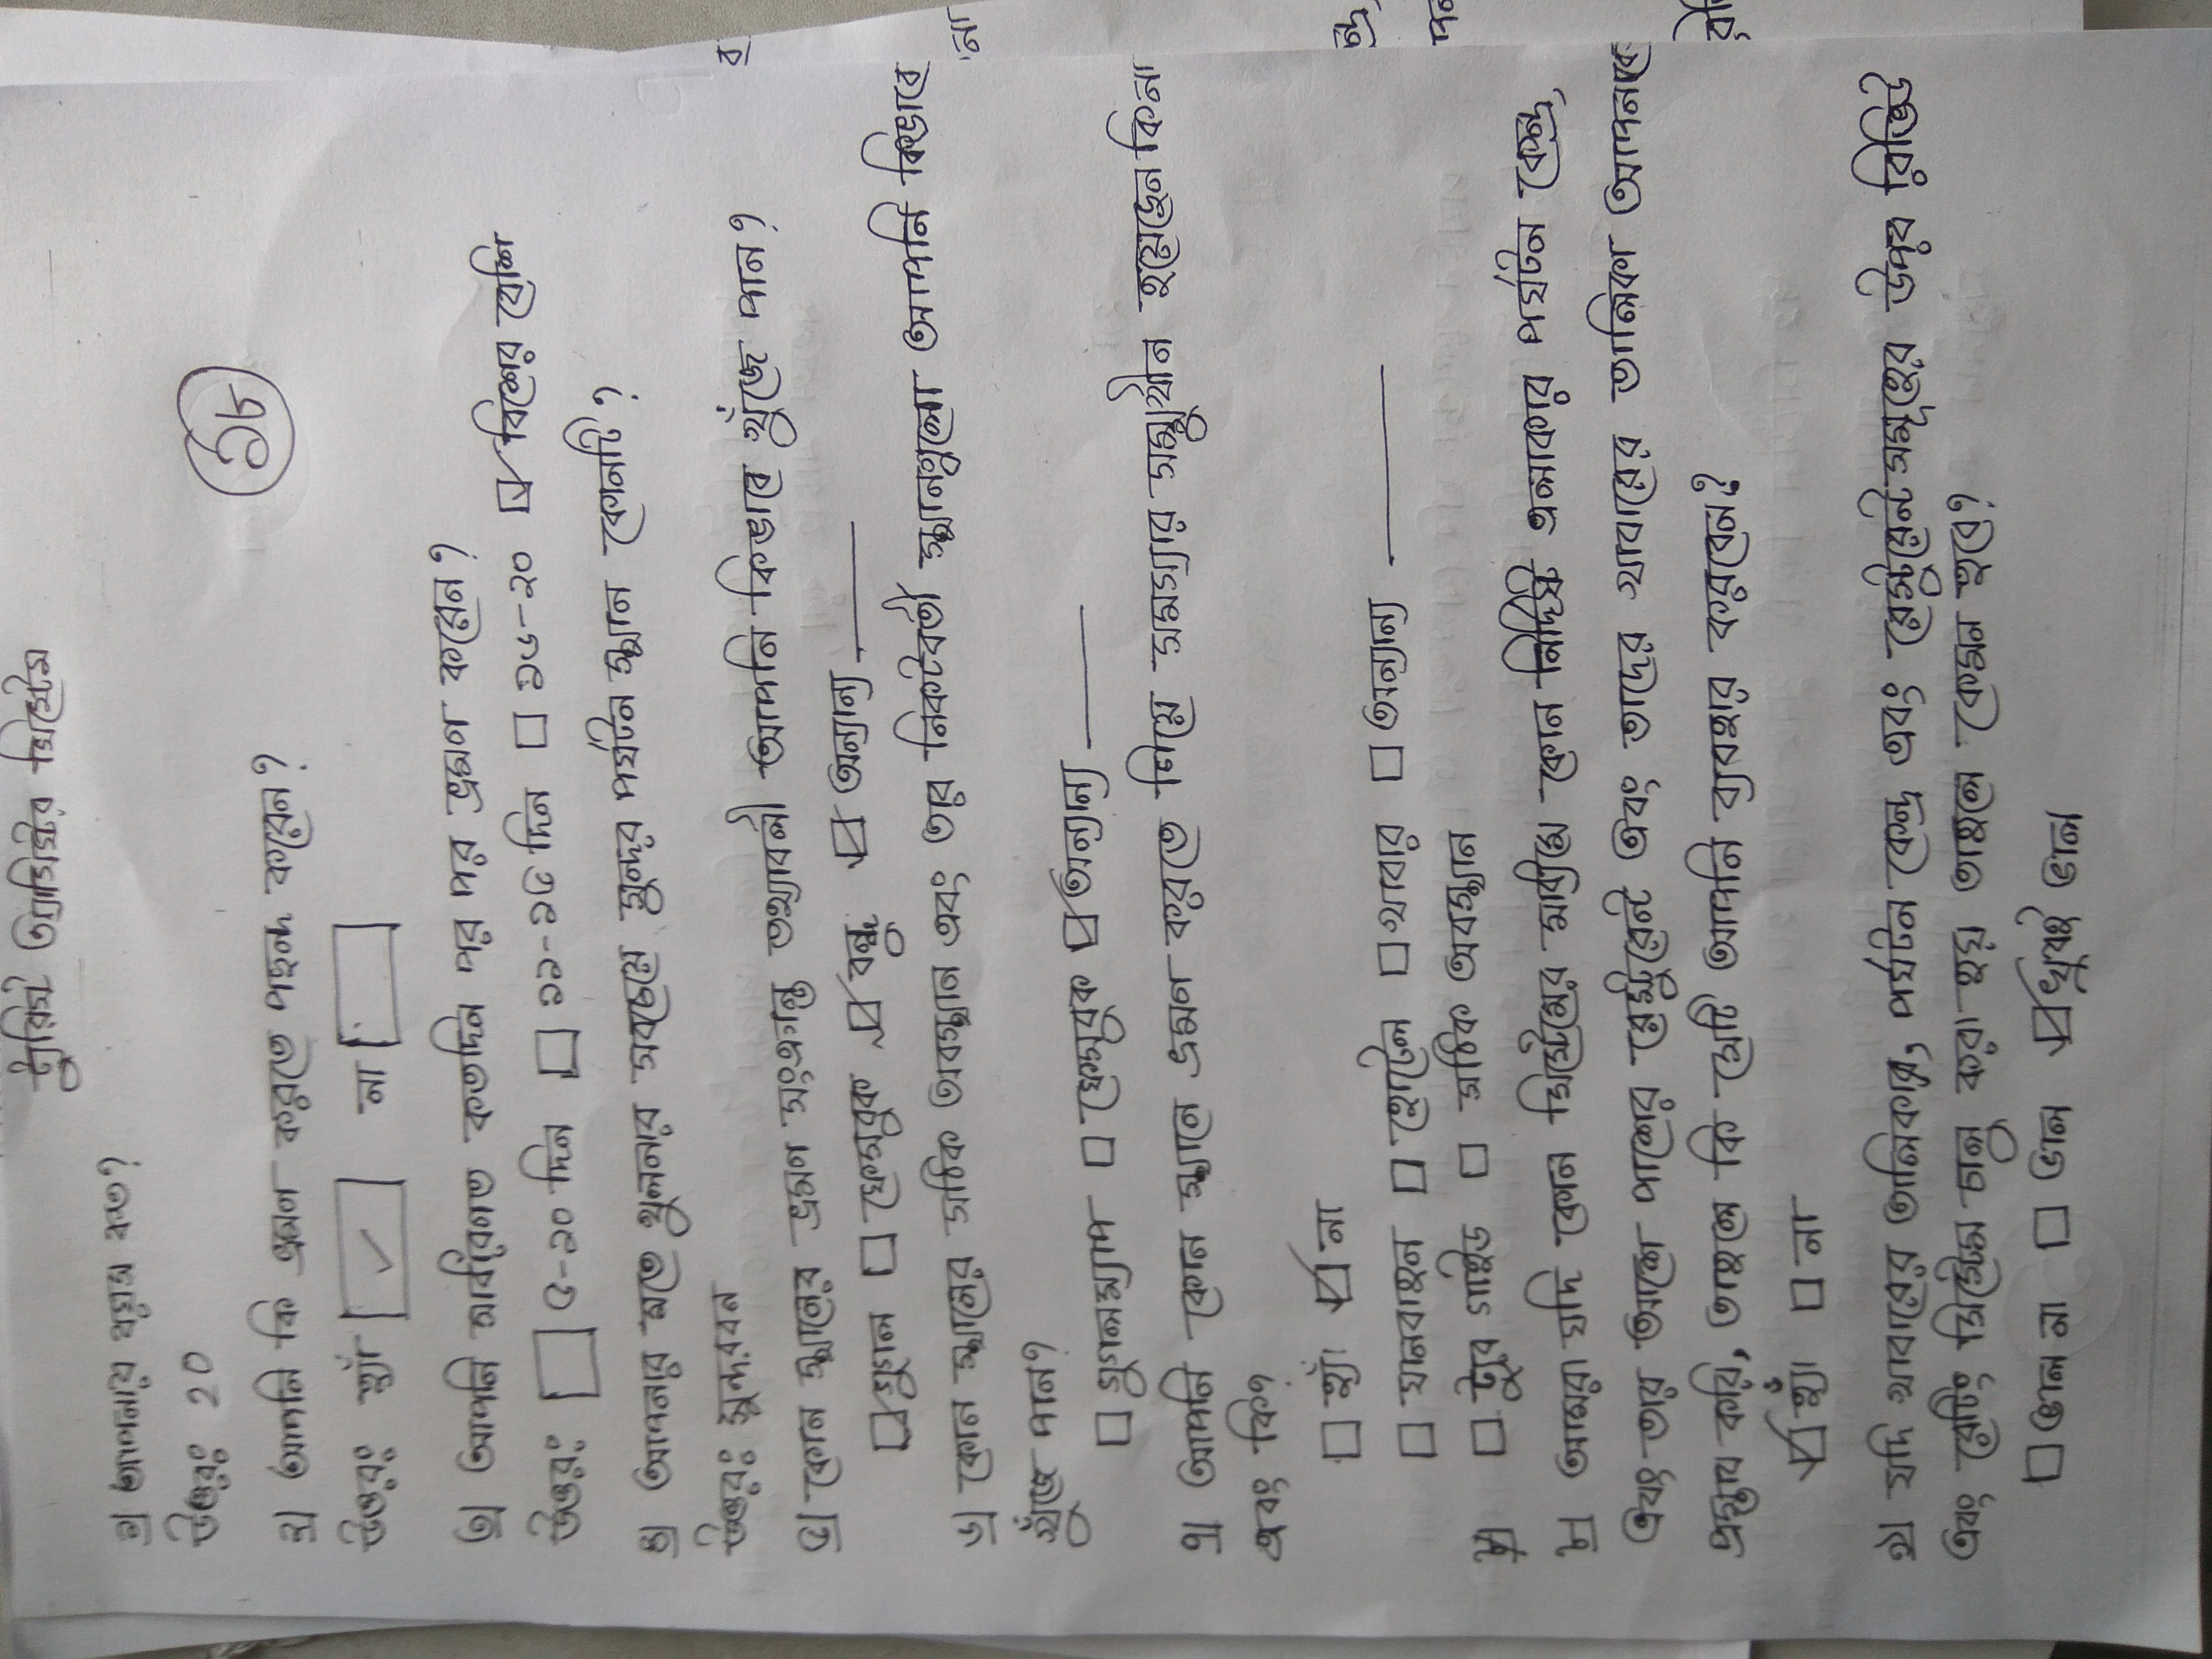 টুরিস্ট অ্যাসিস্টর সিস্টেম
১৮
১| আপনার বয়স কত?
উত্তরঃ 20
২| আপনি কি ভ্রমন করতে পছন্দ করেন?
উত্তরঃ হ্যাঁ ✓ না
৩| আপনি সার্বাধিকত কতদিন পর পর ভ্রমণ করেন?
উত্তরঃ ☐ ৫-১০ দিন ☐ ১১-১৫ দিন ☐ ১৬-২০ ☑ বিশের বেশি
৪| আপনার মতে খুলনার সবচেয়ে সুন্দর পর্যটন স্থান কোনটি?
উত্তরঃ সুন্দরবন
৫| কোন স্থানের ভ্রমন সংক্রান্ত তথ্যাবলী আপনি কিভাবে খুঁজে পান?
☑ গুগল ☐ ফেসবুক ☑ বন্ধু ☑ অন্যান্য ______
৬| কোন স্থানের সঠিক অবস্থান এবং তার নিকটবর্তী স্থানগুলো আপনি কিভাবে
খুঁজে পান?
☐ গুগলম্যাপ ☐ ফেসবুক ☑ অন্যান্য ______
৭| আপনি কোন স্থানে ভ্রমন করতে গিয়ে সমস্যার সম্মুখীন হয়েছেন কিনা
এবং কি?
☐ হ্যাঁ ☑ না
☐ যানবাহন ☐ হোটেল ☐ খাবার ☐ অন্যান্য ______
☐ টুর গাইড ☐ সঠিক অবস্থান
৮| আমরা যদি কোন সিস্টেমের মাধ্যমে কোন নির্দিষ্ট এলাকার পর্যটন কেন্দ্র,
এবং তার আশে পাশের রেস্টুরেন্ট এবং তাদের খাবারের তালিকা আপনাকে
প্রদান করি, তাহলে কি সেটি আপনি ব্যবহার করবেন?
☑ হ্যাঁ ☐ না
৯| যদি খাবারের তালিকায়, পর্যটন কেন্দ্র এবং রেস্টুরেন্ট সমূহের উপর রিভিউ
এবং রেটিং সিস্টেম চালু করা হয় তাহলে কেমন হবে?
☐ ভাল না ☐ ভাল ☑ খুবই ভাল